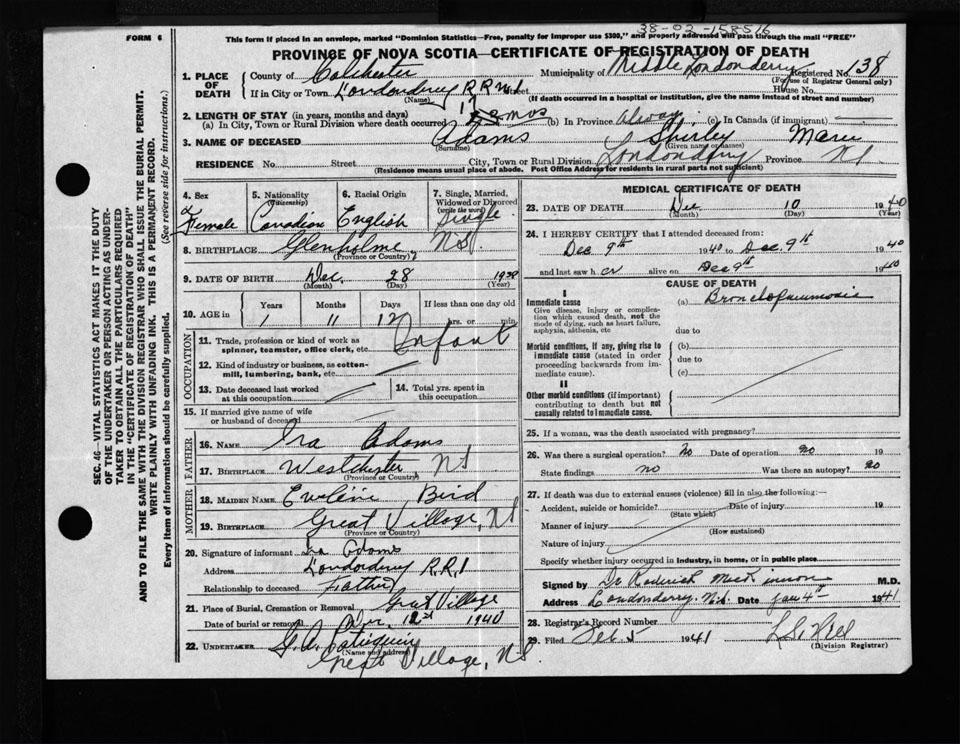 38-02-158516
FORM 6
This form if placed in an envelope, marked "Dominion Statistics—Free, penalty for improper use $300," and properly addressed will pass through the mail "FREE"
PROVINCE OF NOVA SCOTIA—CERTIFICATE OF REGISTRATION OF DEATH
1. PLACE OF DEATH County of Colchester Municipality of Middle Londonderry Registered No. 138
(For use of Registrar General only)
If in City or Town Londonderry R R No 1 Street House No.
(Name) (If death occurred in a hospital or institution, give the name instead of street and number)
2. LENGTH OF STAY (in years, months and days)
(a) In City, Town or Rural Division where death occurred 17 mos (b) In Province always (c) In Canada (if immigrant)
3. NAME OF DECEASED Adams Shirley Marie
(Surname) (Given name or names)
RESIDENCE No. Street City, Town or Rural Division Londonderry Province NS
(Residence means usual place of abode. Post Office Address for residents in rural parts not sufficient)
4. Sex Female
5. Nationality (Citizenship) Canadian
6. Racial Origin English
7. Single, Married, Widowed or Divorced (write the word) Single
8. BIRTHPLACE Glenholme, N.S.
(Province or Country)
9. DATE OF BIRTH Dec. 28 1938
(Month) (Day) (Year)
10. AGE in Years Months Days If less than one day old
1 11 12 hrs. or min.
OCCUPATION
11. Trade, profession or kind of work as spinner, teamster, office clerk, etc. Infant
12. Kind of industry or business, as cotton-mill, lumbering, bank, etc.
13. Date deceased last worked at this occupation
14. Total yrs. spent in this occupation
15. If married give name of wife or husband of deceased
FATHER
16. NAME Ira Adams
17. BIRTHPLACE Westchester, NS
(Province or Country)
MOTHER
18. MAIDEN NAME Bird
19. BIRTHPLACE Great Village, NS
(Province or Country)
20. Signature of informant Ira Adams
Address Londonderry R.R. 1
Relationship to deceased Father
21. Place of Burial, Cremation or Removal Great Village
Date of burial or removal 1940
22. UNDERTAKER
(Name and address)
Great Village, NS.
MEDICAL CERTIFICATE OF DEATH
23. DATE OF DEATH Dec 10 1940
(Month) (Day)
24. I HEREBY CERTIFY that I attended deceased from:
Dec 9th 1940 to Dec. 9th 1940
and last saw her alive on Dec 9th 1940
CAUSE OF DEATH
I
Immediate cause (a) Bronchopneumonia
Give disease, injury or complication which caused death, not the mode of dying, such as heart failure, asphyxia, asthenia, etc
due to
Morbid conditions, if any, giving rise to immediate cause (stated in order proceeding backwards from immediate cause). (b)
due to
(c)
II
Other morbid conditions (if important) contributing to death but not causally related to immediate cause.
25. If a woman, was the death associated with pregnancy?
26. Was there a surgical operation? No Date of operation no 19
State findings no Was there an autopsy? no
27. If death was due to external causes (violence) fill in also the following:—
Accident, suicide or homicide? Date of injury 19
(State which)
Manner of injury
(How sustained)
Nature of injury
Specify whether injury occurred in industry, in home, or in public place
Signed by Dr Roderick MacKinnon M.D.
Address Londonderry. N.S. Date Jan 4th 1941
28. Registrar's Record Number
29. Filed 5 1941
(Division Registrar)
SEC. 46—VITAL STATISTICS ACT MAKES IT THE DUTY
OF THE UNDERTAKER OR PERSON ACTING AS UNDER-
TAKER TO OBTAIN ALL THE PARTICULARS REQUIRED
IN THE "CERTIFICATE OF REGISTRATION OF DEATH"
AND TO FILE THE SAME WITH THE DIVISION REGISTRAR WHO SHALL ISSUE THE BURIAL PERMIT.
WRITE PLAINLY WITH UNFADING INK. THIS IS A PERMANENT RECORD.
Every item of information should be carefully supplied. (See reverse side for instructions.)